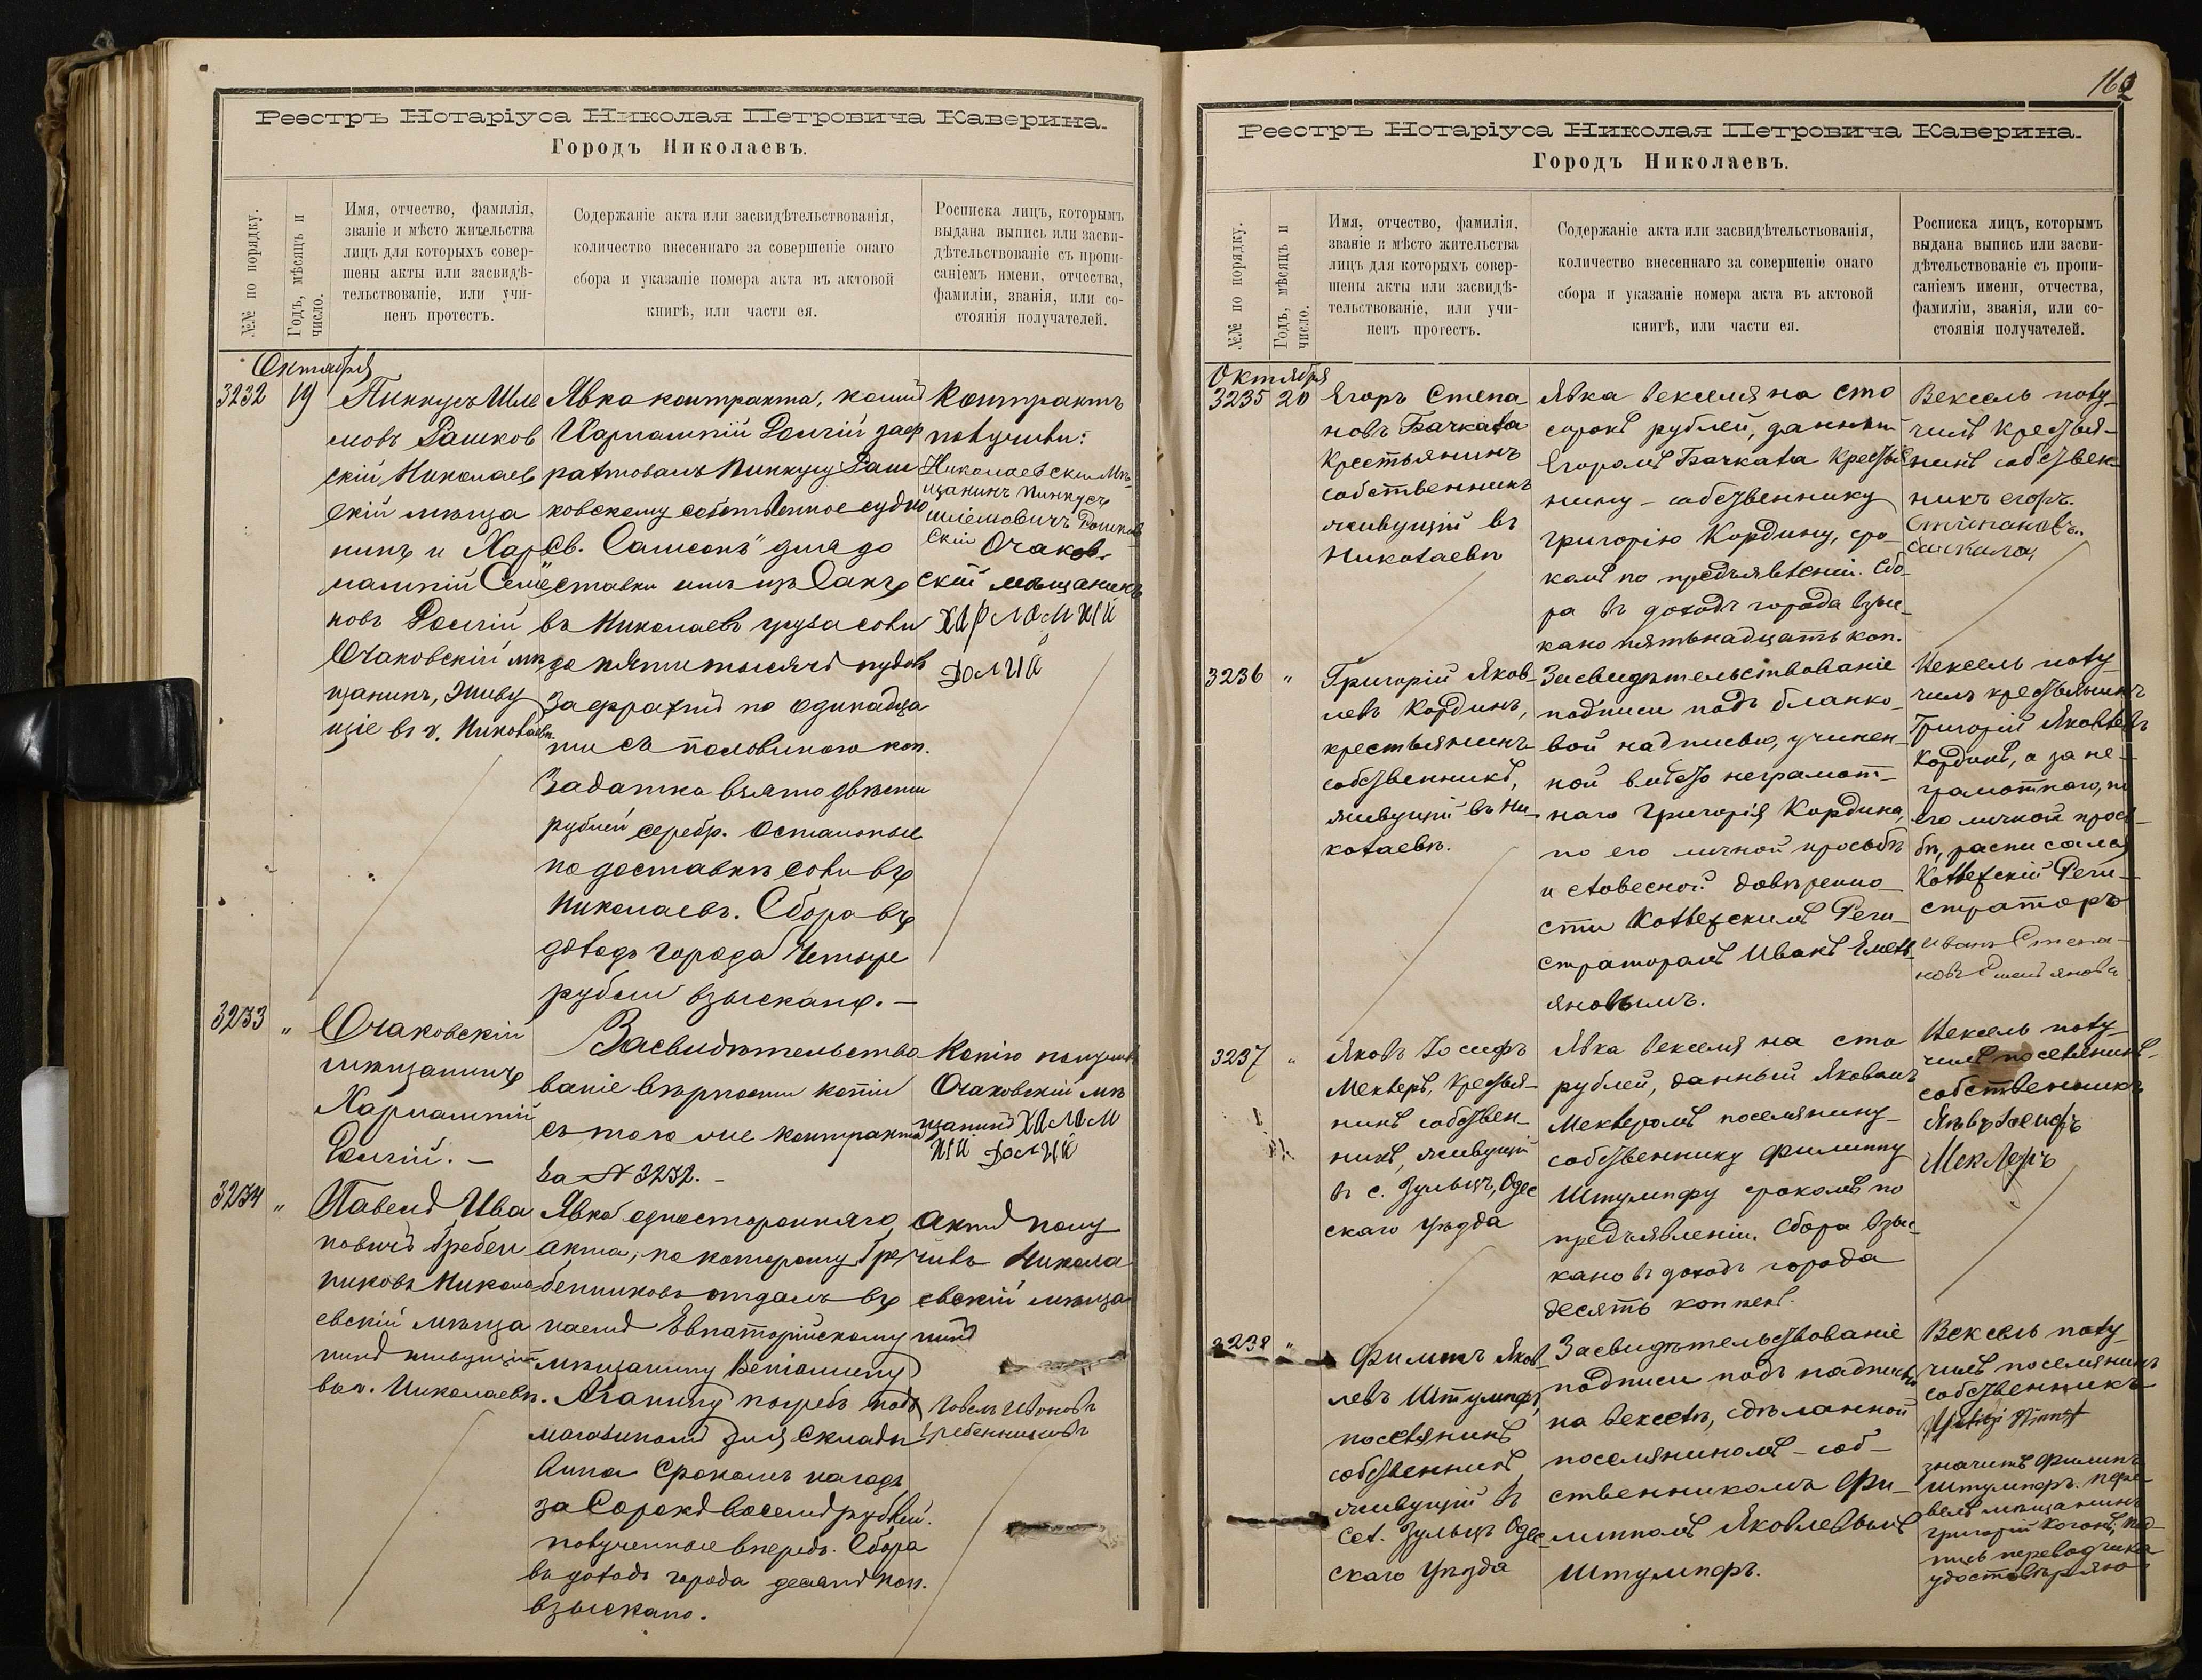 Реестръ Нотаріуса Николая Петровича Каверина.
Городъ Николаевъ.
№№ по порядку.
Годъ, мѣсяцъ и
число.
Имя, отчество, фамилія,
званіе и мѣсто жительства
лицъ для которыхъ совер-
шены акты или засвидѣ-
тельствованіе, или учи-
ненъ протестъ.
Содержаніе акта или засвидѣтельствованія,
количество внесеннаго за совершеніе онаго
сбора и указаніе номера акта въ актовой
книгѣ, или части ея.
Росписка лицъ, которымъ
выдана выпись или засви-
дѣтельствованіе съ пропи-
саніемъ имени, отчества,
фамиліи, званія, или со-
стоянія получателей.
Октября
3232
19
Пинкусъ Шле
мовъ Рашков
скій, Николаев
скій мѣща
нинъ и Хар
лампій Семе
новъ Долгій
Очаковскій мѣ
щанинъ, живу
щіе въ г. Николаевѣ.
Явка контракта, коимъ
Харлампій Долгій заф
рахтовалъ Пинкусу Раш
ковскому собственное судно
„Св. Самсонъ" для до
ставки имъ изъ Сакъ
въ Николаевъ груза соли
до пяти тысячъ пудовъ
За фрахтъ по одинадца
ти съ половиною коп.
Задатка взято двѣсти
рублей серебр. Остальные
по доставкѣ соли въ
Николаевъ. Сбора въ
доходъ города четыре
рубли взыскано. —
Контрактъ
получили:
Николаевски Мѣ
щанинъ Пинкусъ
Шлемовичъ Рашков
скій Очаков-
скій мѣщанинъ
ХАРЛАМПІЙ
ДОЛГІЙ
3233
"
Очаковскій
мѣщанинъ
Харлампій
Долгій. —
Засвидѣтельство
ваніе вѣрности копіи
съ того же контракта
за № 3232. —
Копію получилъ
Очаковскій мѣ
щанинъ ХАЛАМ
ПІЙ ДОЛГІЙ
3234
"
Павелъ Ива
новичъ Гребен
никовъ Никола
евскій мѣща
нинъ живущій
въ г. Николаевѣ.
Явка односторонняго
акта, по которому Гре
бенниковъ отдалъ въ
наемъ Евпаторійскому
мѣщанину Веніамину
Аганину погребъ подъ
магазиномъ для склада
вина срокомъ на годъ
за Сорокъ восемь рублей.
полученные впередъ. Сбора
въ доходъ города десять коп.
взыскано.
Актъ полу
чилъ Никола
евскій мѣща
нинъ
Павелъ Ивановъ
Гребенниковъ
162
Реестръ Нотаріуса Николая Петровича Каверина.
Городъ Николаевъ.
№№ по порядку.
Годъ, мѣсяцъ и
число.
Имя, отчество, фамилія,
званіе и мѣсто жительства
лицъ для которыхъ совер-
шены акты или засвидѣ-
тельствованіе, или учи-
ненъ протестъ.
Содержаніе акта или засвидѣтельствованія,
количество внесеннаго за совершеніе онаго
сбора и указаніе номера акта въ актовой
книгѣ, или части ея.
Росписка лицъ, которымъ
выдана выпись или засви-
дѣтельствованіе съ пропи-
саніемъ имени, отчества,
фамиліи, званія, или со-
стоянія получателей.
Октября
3235
20
Егоръ Степа
новъ Бачкала
Крестьянинъ
собственникъ
живущій въ
Николаевѣ
Явка векселя на сто
сорокъ рублей, данный
Егоромъ Бачкала Крестья
нину - собственнику
Григорію Кордину, сро-
комъ по предъявленіи. Сбо-
ра въ доходъ города взыс-
кано пятьнадцать коп.
Вексель полу-
чилъ Крестья-
нинъ собствен-
никъ егоръ
Стипановъ
бачкала
3236
"
Григорій Яков-
левъ Кординъ,
крестьянинъ
собственникъ,
живущій въ Ни-
колаевѣ.
Засвидѣтельствованіе
подписи подъ бланко-
вой надписью, учинен-
ной вмѣсто неграмот-
наго Григорія Кордина,
по его личной просьбѣ
и словесной довѣренно-
сти Коллежскимъ Реги-
страторомъ Иваномъ Емель-
яновымъ.
Вексель полу-
чилъ крестьянинъ
Григорій Яковлевъ
Кординъ, а за не-
грамотнаго, по
его личной прось-
бѣ, расписался
Коллежскій Реги-
страторъ
Иванъ Степа-
новъ Емельяновъ
3237
"
Яковъ Іосифъ
Меклеръ, крестья-
нинъ собствен-
никъ, живущій
въ с. Зульцъ, Одес
скаго уѣзда
Явка векселя на сто
рублей, данный Яковомъ
Меклеромъ поселянину-
собственнику Филиппу
Штумпфу срокомъ по
предъявленіи. Сбора взыс-
кано въ доходъ города
десять копѣекъ.
Вексель полу-
чилъ поселянинъ-
собственникъ
Якъвъ Іосифъ
МекЛеръ
3238
"
Филипъ Яков-
левъ Штумпфъ,
поселянинъ
собственникъ,
живущій въ
сел. Зульцъ Одес-
скаго Уѣзда
Засвидѣтельствованіе
подписи подъ надписью
на векселѣ, сдѣланной
поселяниномъ - соб-
ственникомъ Фи-
липпомъ Яковлевымъ
Штумпфъ.
Вексель полу-
чилъ поселянинъ
собственникъ
значитъ Филипъ
Штумпфъ. Пере-
велъ мѣщанинъ
Григорій Коганъ, под-
пись переводчика
удостовѣряю